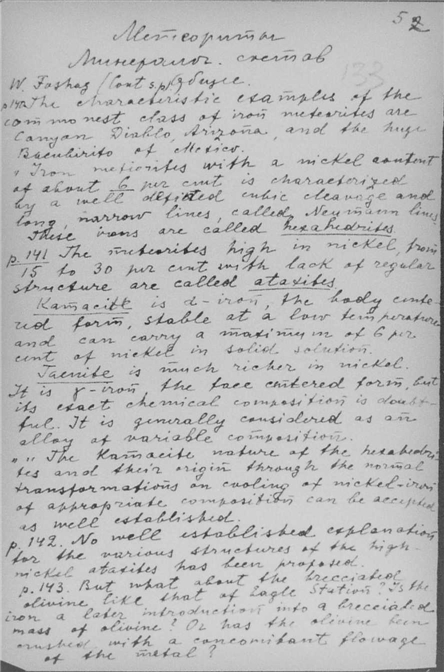 52
Метеориты
Минералог. состав
133
W. Foshag (Cont s.p.)
p 140 The characteristic examples of the
commonest class of iron meteorites are
Canyan Diablo, Arizona, and the huge
Bacubirito of Mexico.
" Iron meteorites with a nickel content
of about 6 per cent, is characterized
by a well defined cubic cleavage and
long, narrow lines, called Neumann lines
These irons are called hexahedrites.
p. 141 The meteorites high in nickel, from
15 to 30 per cent with lack of regular
structure are called ataxites.
Kamacite is α-iron, the body cente-
red form, stable at a low temperature
and can carry a maximum of 6 per
cent of nickel in solid solution.
Taenite is much richer in nickel.
It is γ-iron the face centered form, but
its exact chemical composition is doubt-
ful. It is generally considered as an
alloy of variable composition.
" " The Kamacite nature of the hexahedri-
tes and their origin through the normal
transformations on cooling of nickel-iron
of appropriate composition can be accepted
as well established.
p. 142. No well established explanation
for the various structures of the high-
nickel ataxites has been proposed.
p. 143. But what about the brecciated
olivine like that of Eagle Station? Is the
iron a later introduction into a brecciated
mass of olivine? Or has the olivine been
crushed with a concomitant flowage
of the metal?